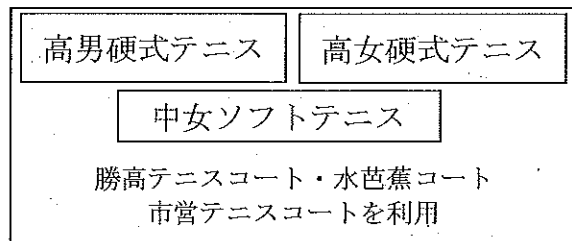 高男硬式テニス 高女硬式テニス
中女ソフトテニス
勝高テニスコート・水芭蕉コート
市営テニスコートを利用